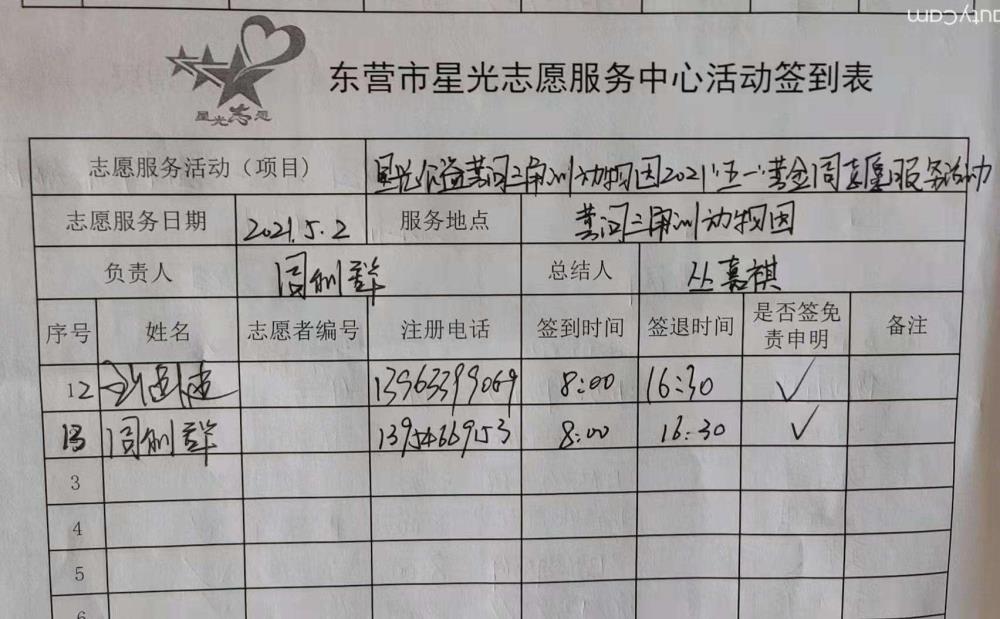 utyCam
星光志愿
东营市星光志愿服务中心活动签到表
志愿服务活动（项目） 星光公益黄河三角洲动物园2021"五一"黄金周志愿服务活动
志愿服务日期 2021.5.2 服务地点 黄河三角洲动物园
负责人 周 群 总结人 丛嘉祺
序号 姓名 志愿者编号 注册电话 签到时间 签退时间 是否签免责申明 备注
12 13963399069 8:00 16:30 ✓
13 周 群 13954669153 8:00 16:30 ✓
3
4
5
6